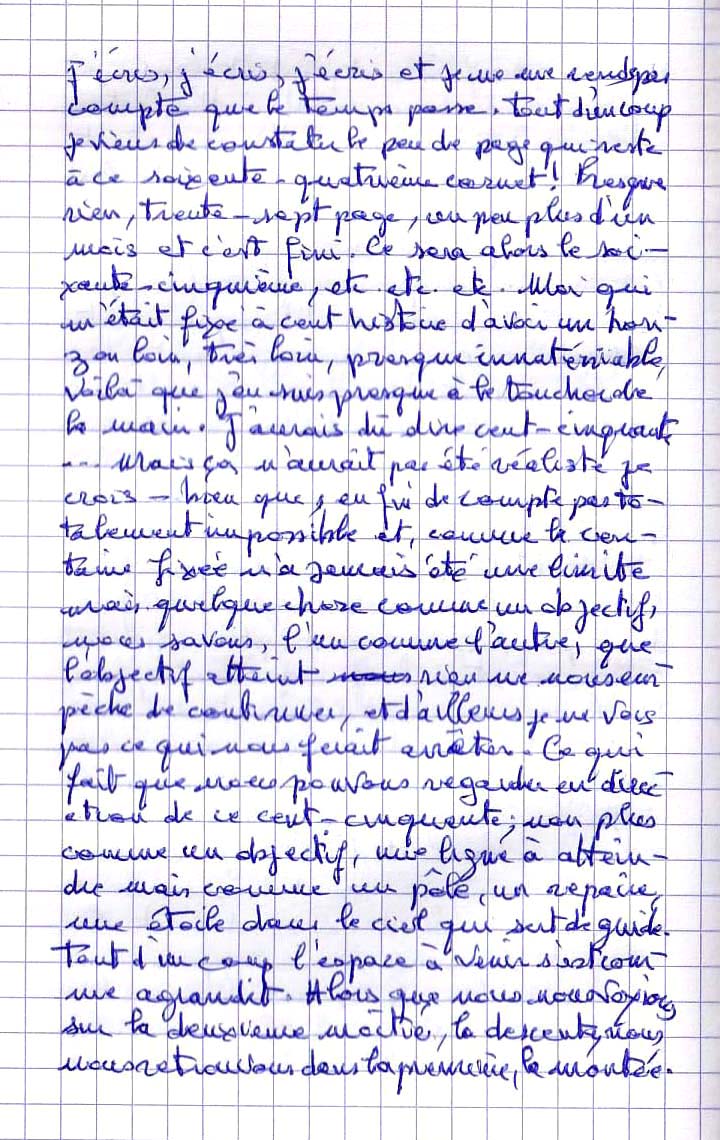 j'écris, j'écris, j'écris et je ne me rends pas
compte que le temps passe. Tout d'un coup
je viens de constater le peu de page qui reste
à ce soixente-quatrième carnet! Presque
rien, trente-sept page, un peu plus d'un
mois et c'est fini. Ce sera alors le soi-
xante-cinquième, etc. etc. etc. Moi qui
m'était fixé à cent histoire d'avoir un hori-
zon loin, très loin, presque innaténiable,
voilà que j'en suis presque à le toucher de
la main. J'aurais dû dire cent-cinquante
... Mais ça n'aurait pas été réaliste je
crois - bien que, en fin de compte pas to-
talement impossible et, comme la cen-
taine fixée n'a jamais été une limite
mais quelque chose comme un objectif,
nous savons, l'un comme l'autre, que
l'objectif atteint rien ne nous em-
pèche de continuer, et d'ailleurs je ne vois
pas ce qui nous ferait arrêter. Ce qui
fait que nous pouvons regarder en direc-
tion de ce cent-cinquante; non plus
comme un objectif, une ligne à attein-
dre mais comme un pôle, un repaire,
une étoile dans le ciel qui sert de guide.
Tout d'un coup l'espace à venir s'est com-
me agrandit. Alors que nous nous voyions
sur la deuxième moitié, la descente, nous
nous retrouvons dans la première, la montée.